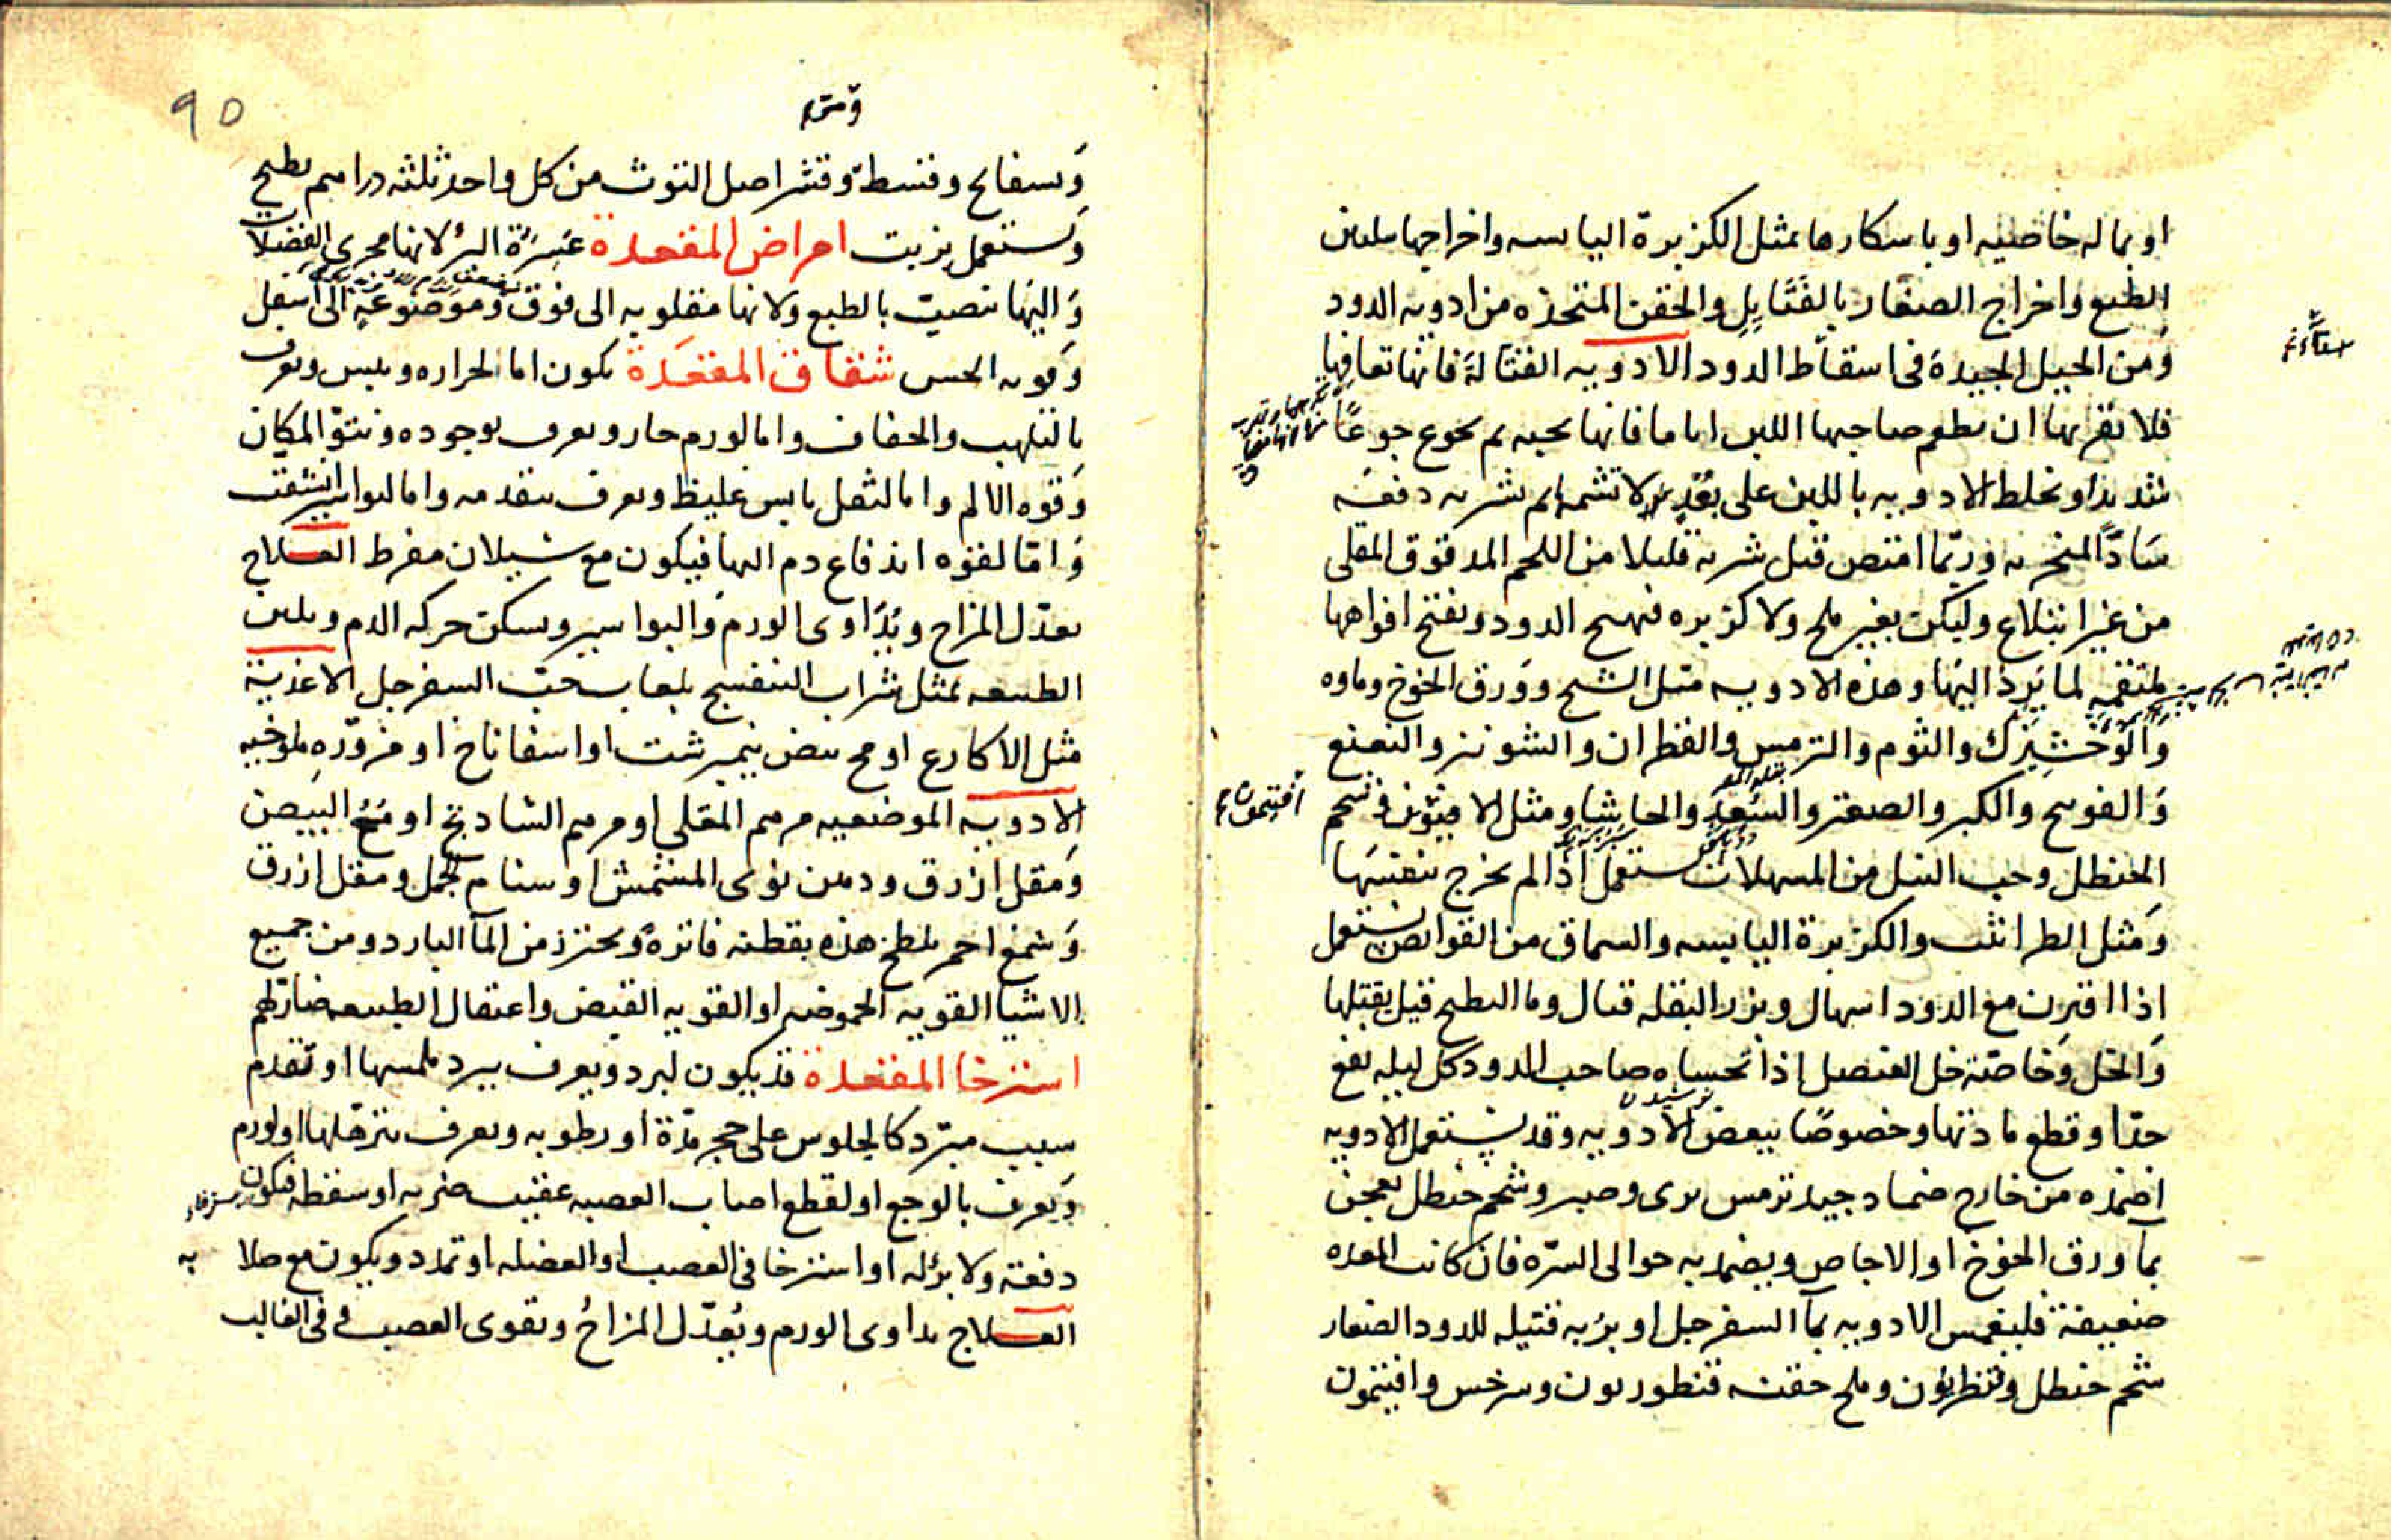 او بما له خاصيه او باسكارها بمثل الكزبرة اليابسه واخراجها بتليين
الطبع واخراج الصغار بالفتايل والحقن المتخذه من ادويه الدود
ومن الحيل الجيدة فى اسقاط الدود الادويه القتالة فانها تعافها
فلا تقربها ان يطعم صاحبها اللبن اياما فانها تحبه ثم يجوع جوعًا
شديدا وتخلط الادويه باللبن على بُعدٍ لا تشمه ثم يشربه دفعه
سَادًّا لمنخريه وربّما امتص قبل شربه قليلا من اللحم المدقوق المقلى
من غير ابتلاع وليكن بغير ملح ولا كزبره فيهيج الدود ويفتح افواهها
ملتقمه لما يَرِد اليها وهذه الادويه مثل الشيح وورق الخوخ وماوه
والوخشيزك والثوم والترمس والقطران والشونيز والنعنع
والفوتنج والكبر والصعتر والسعد والحاشا ومثل الافيثمون وشحم
الحنظل وحب النيل من المسهلات يستعمل اذا لم يخرج بنفسها
ومثل الطراثيث والكزبرة اليابسه والسماق من القوابض يستعمل
اذا اقترن مع الدود اسهال وبزر البقله قتال وما البطيخ قيل يقتلها
والخل وخاصّة خل العنصل اذا تحساه صاحب الدود كل ليله نفع
جدّا وقطع مادتها وخصوصًا ببعض الادويه وقد يستعمل الادويه
اضمده من خارج ضماد جيد ترمس برى وصبر وشحم حنظل يعجن
بمآ ورق الخوخ او الاجاص ويضمد به حوالى السرّه فان كانت المعده
ضعيفة فليغمس الادويه بمآ السفرجل او برُبه فتيله للدود الصغار
شحم حنظل وقنطريون وملح حقنه قنطوريون وسرخس وافيتمون
افيتمون
90
وبسفايج وقسط وقشر اصل التوث من كل واحد ثلثه دراهم يطبخ
ويستعمل بزيت امراض المقعدة عَسِرَة البرُؤ لانها مجرى الفضلات
واليها تنصبّ بالطبع ولانها مقلوبه الى فوق وموضوعه الى اسفل
وقويه الحس شقاق المقعدة يكون اما لحراره ويبس ويعرف
بالتلهب والجفاف واما لورم حار ويعرف بوجوده ونتوّ المكان
وقوه الالم واما لثفل يابس غليظ ويعرف بتقدمه واما لبواسير انشقت
وامّا لقوه اندفاع دم اليها فيكون مع سيلان مفرط العلاج
يعدّل المزاج ويُداوى الورم والبواسير ويسكن حركه الدم ويلين
الطبيعه بمثل شراب البنفسج بلعاب حب السفرجل الاغذية
مثل الاكارع او مح بيض نيمبرشت او اسفاناخ او مزوّره ملوخيه
الادويه الموضعيه مرهم المقلى او مرهم الشادنج او مُخُ البيض
ومقل ازرق ودهن نوى المشمش او سنام الجمل ومقل ازرق
وشمع احمر يلطخ هذه بقطنه فاترةً ويحترز من المآ البارد ومن جميع
الاشيا القويه الحموضه او القويه القبض واعتقال الطبيعه ضار لهم
استرخا المقعدة قد يكون لبرد ويعرف ببرد ملمسها او تقدم
سبب مبرّد كالجلوس على حجر مدّة او رطوبه ويعرف بترهّلها او لورم
ويعرف بالوجع او لقطع اصاب العصبه عقيب ضربه او سقطه فيكون
دفعة ولا برُؤ له او استرخا فى العصب او العضله او تمدد ويكون مع صلا به
العلاج يداوى الورم ويُعدّل المزاج ويقوى العصب وفى الغالب